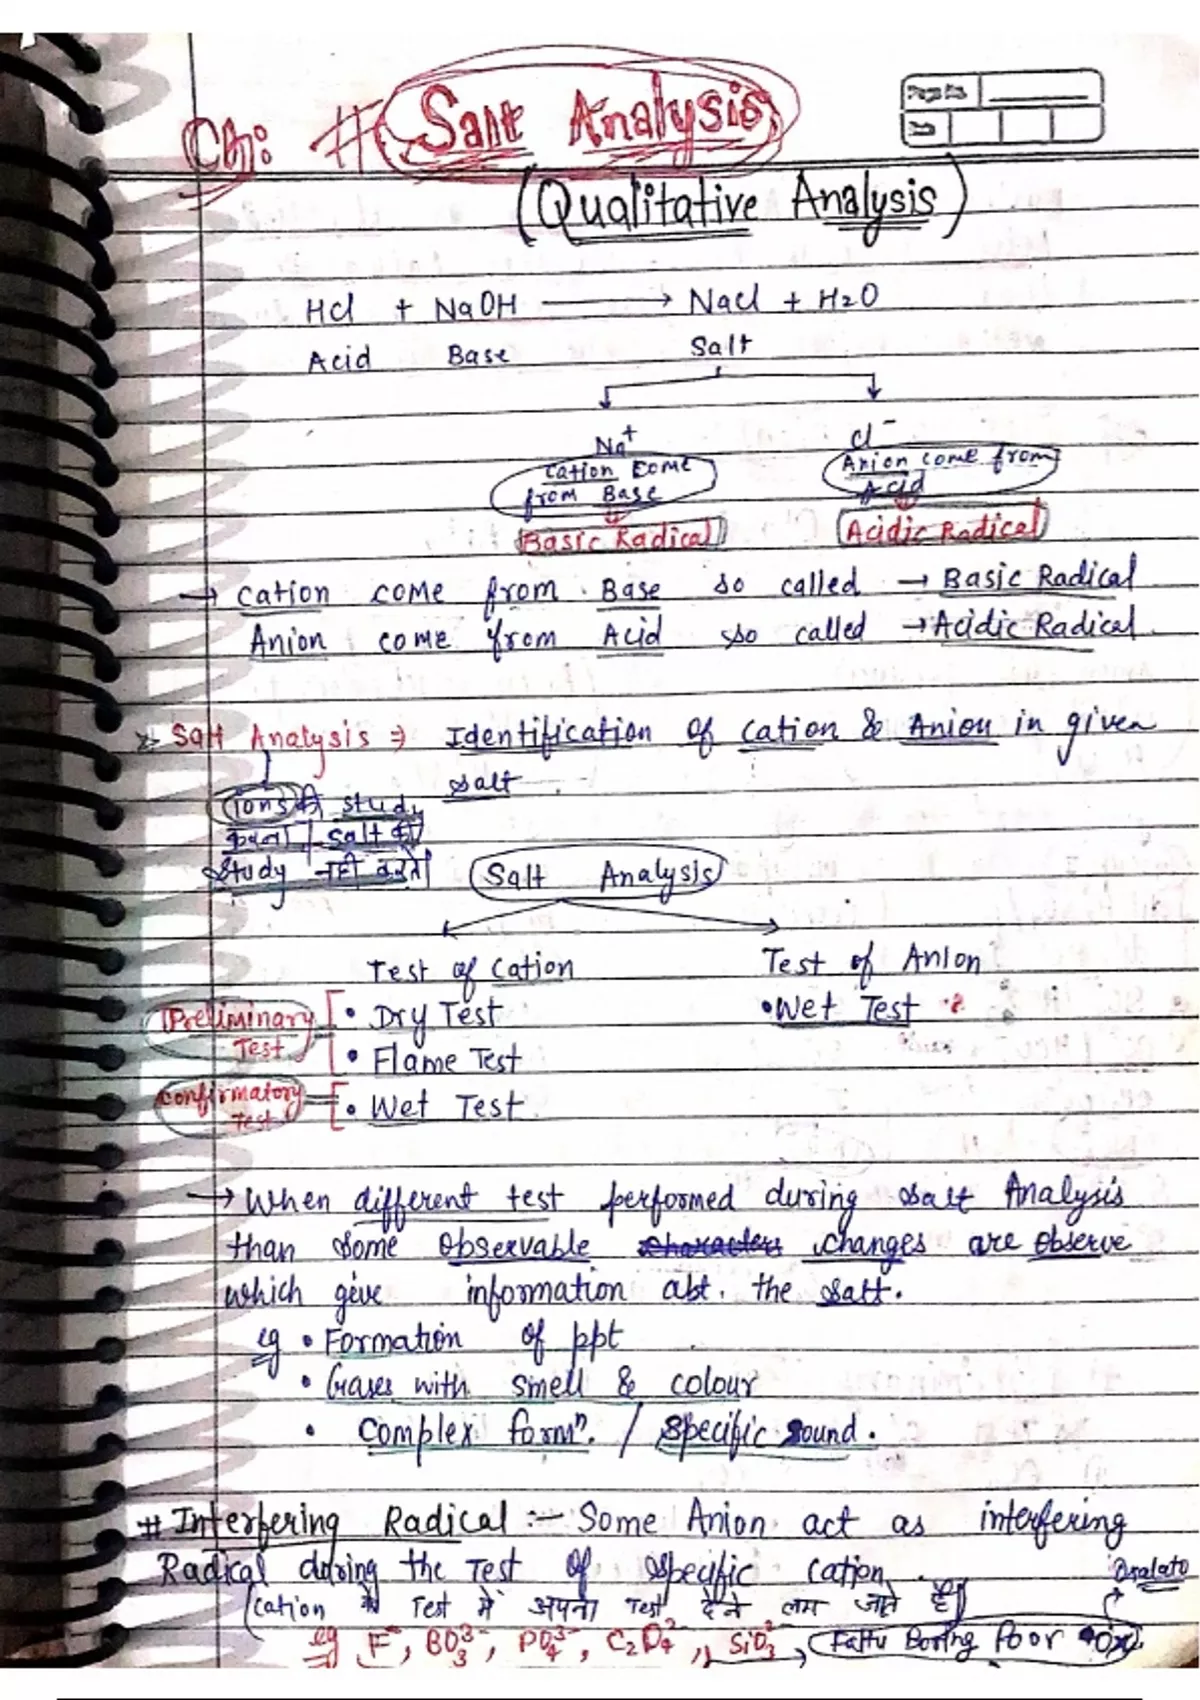 Ch: # Salt Analysis
Page No.
(Qualitative Analysis)
HCl + NaOH ⟶ NaCl + H2O
Acid Base Salt
Na+ Cl-
Cation come from Base
Anion come from Acid
Basic Radical Acidic Radical
→ Cation come from Base so called → Basic Radical
Anion come from Acid so called → Acidic Radical
Salt Analysis ⇒ Identification of Cation & Anion in given
salt
ions की study
करना / salt की
study नहीं करते
Salt Analysis
Test of Cation Test of Anion
Preliminary Test
• Dry Test • Wet Test
• Flame Test
Confirmatory Test
• Wet Test
→ When different test performed during salt Analysis
than some observable characters changes are observe
which give information abt. the salt.
eg • Formation of ppt
• Gases with smell & colour
• Complex formn. / specific sound.
# Interfering Radical :- Some Anion act as interfering
Radical during the Test of specific cation.
Oxalate
(cation के Test में अपना Test देने लग जाते हैं)
eg F-, BO3^3-, PO4^3-, C2O4^2-, SiO3^2- → Fattu Boring Poor Ox